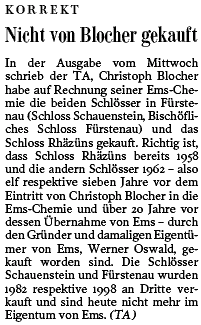 KORREKT
Nicht von Blocher gekauft
In der Ausgabe vom Mittwoch
schrieb der TA, Christoph Blocher
habe auf Rechnung seiner Ems-Che-
mie die beiden Schlösser in Fürste-
nau (Schloss Schauenstein, Bischöfli-
ches Schloss Fürstenau) und das
Schloss Rhäzüns gekauft. Richtig ist,
dass Schloss Rhäzüns bereits 1958
und die andern Schlösser 1962 – also
elf respektive sieben Jahre vor dem
Eintritt von Christoph Blocher in die
Ems-Chemie und über 20 Jahre vor
dessen Übernahme von Ems – durch
den Gründer und damaligen Eigentü-
mer von Ems, Werner Oswald, ge-
kauft worden sind. Die Schlösser
Schauenstein und Fürstenau wurden
1982 respektive 1998 an Dritte ver-
kauft und sind heute nicht mehr im
Eigentum von Ems. (TA)